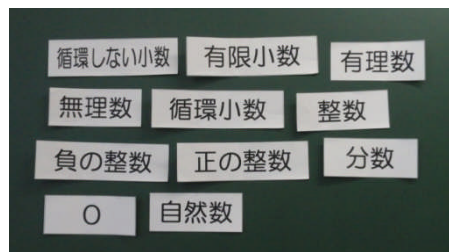 循環しない小数 有限小数 有理数
無理数 循環小数 整数
負の整数 正の整数 分数
0 自然数